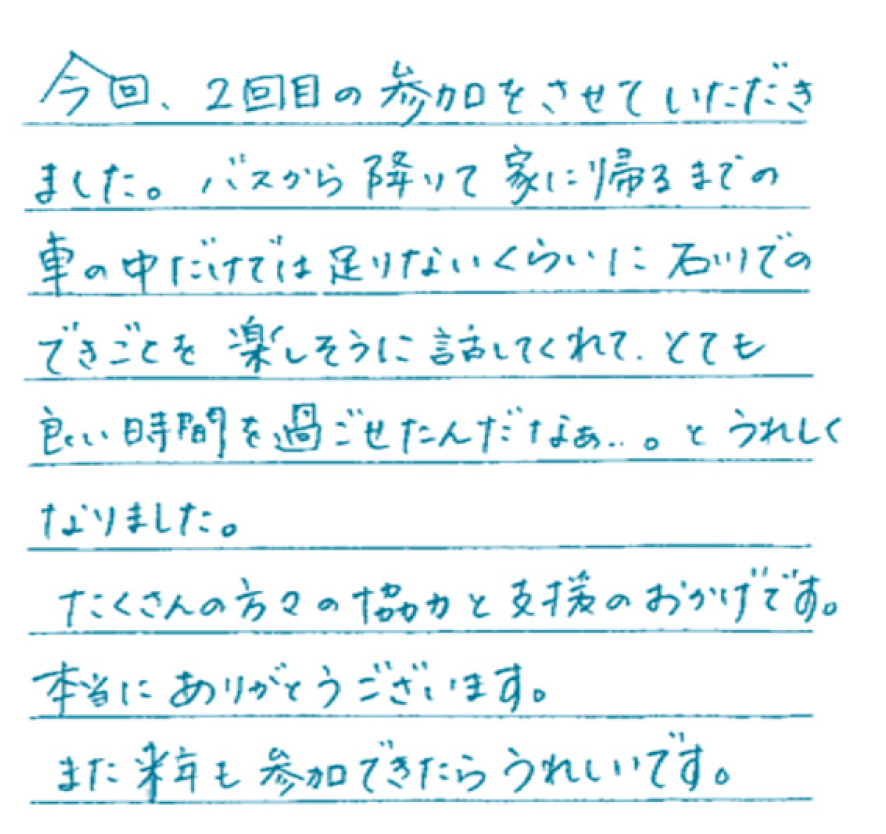 今回、2回目の参加をさせていただき
ました。バスから降りて家に帰るまでの
車の中だけでは足りないくらいに石川での
できごとを楽しそうに話してくれて、とても
良い時間を過ごせたんだなぁ…。とうれしく
なりました。
たくさんの方々の協力と支援のおかげです。
本当にありがとうございます。
また来年も参加できたらうれしいです。